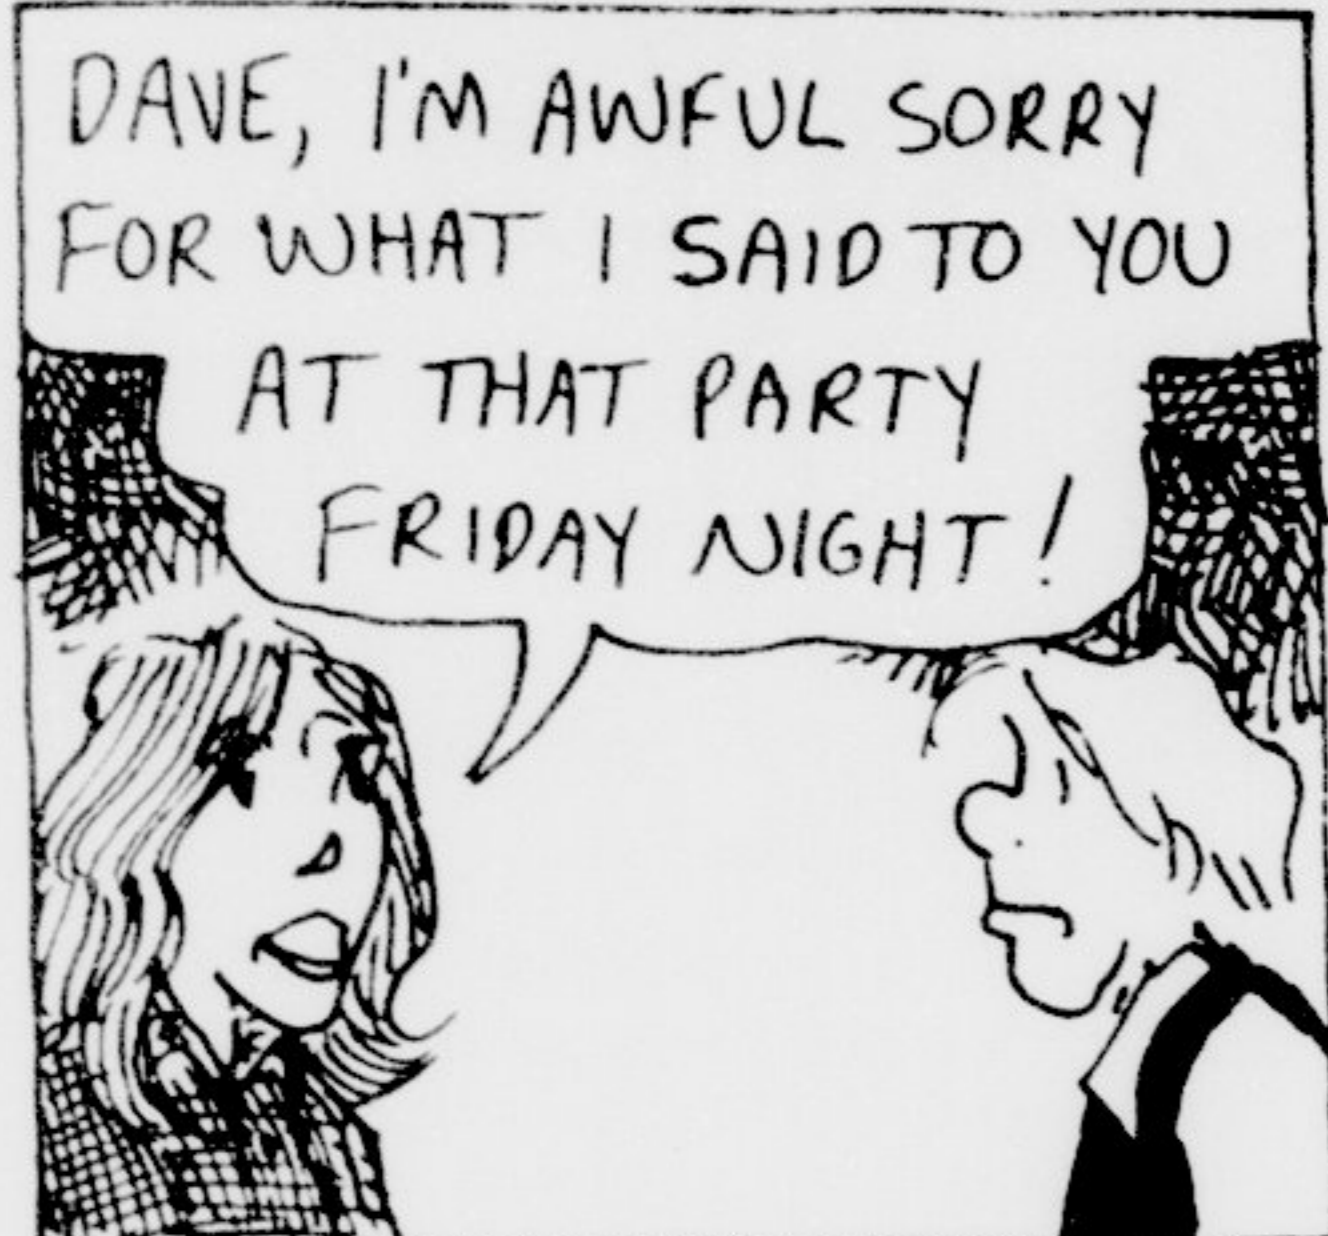 DAVE, I'M AWFUL SORRY
FOR WHAT I SAID TO YOU
AT THAT PARTY
FRIDAY NIGHT!